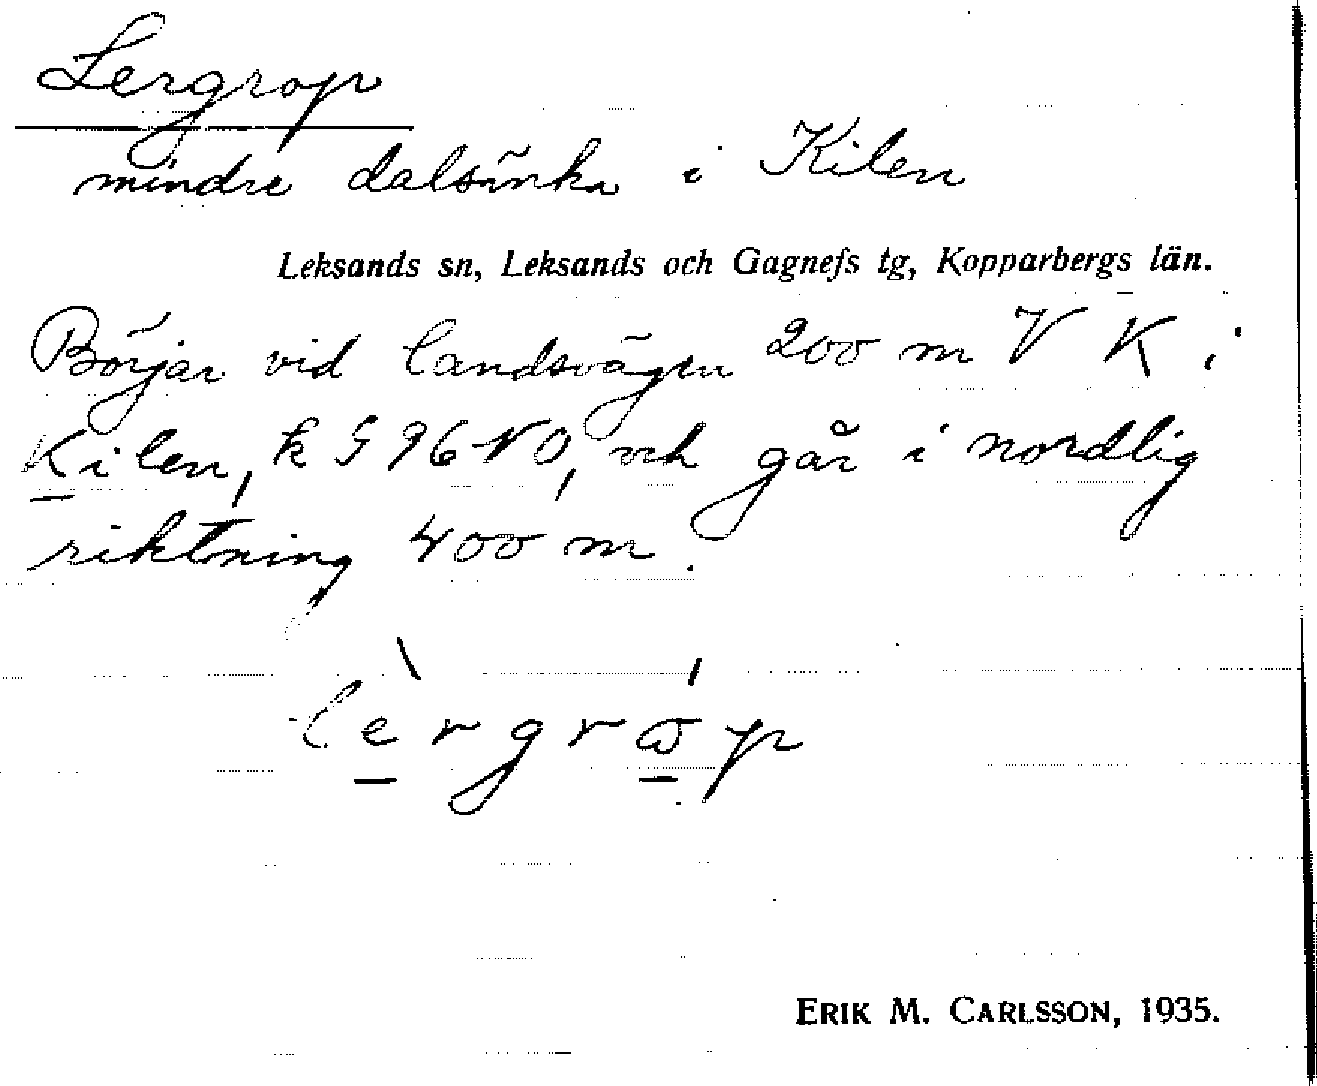 Lergrop
mindre dalsänka i Kilen
Leksands sn, Leksands och Gagnefs tg, Kopparbergs län.
Börjar vid landsvägen 200 m V K i
Kilen, k S 96 NO, och går i nordlig
riktning 400 m.
lèrgrɷ́p
ERIK M. CARLSSON, 1935.